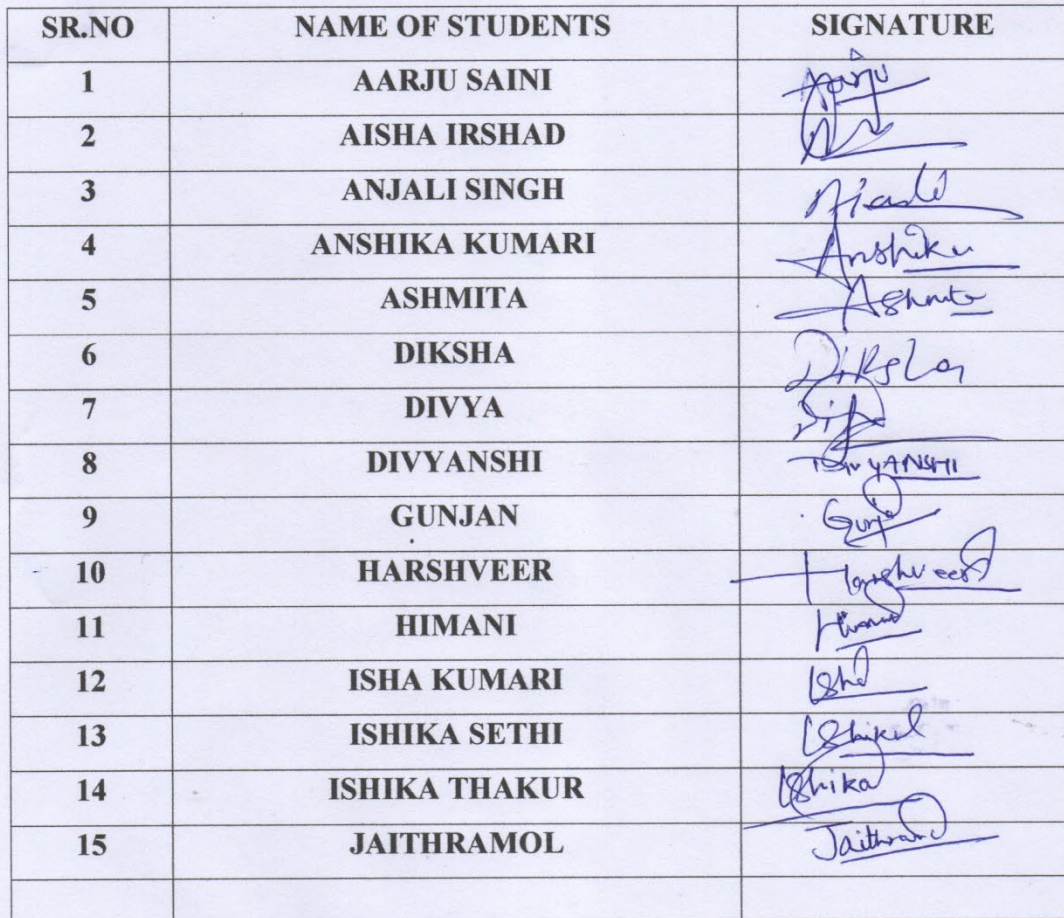 SR.NO NAME OF STUDENTS SIGNATURE
1 AARJU SAINI Aarju
2 AISHA IRSHAD
3 ANJALI SINGH
4 ANSHIKA KUMARI Anshika
5 ASHMITA Ashmita
6 DIKSHA Diksha
7 DIVYA
8 DIVYANSHI DIVYANSHI
9 GUNJAN
10 HARSHVEER Harshveer
11 HIMANI
12 ISHA KUMARI Isha
13 ISHIKA SETHI Ishika
14 ISHIKA THAKUR Ishika
15 JAITHRAMOL